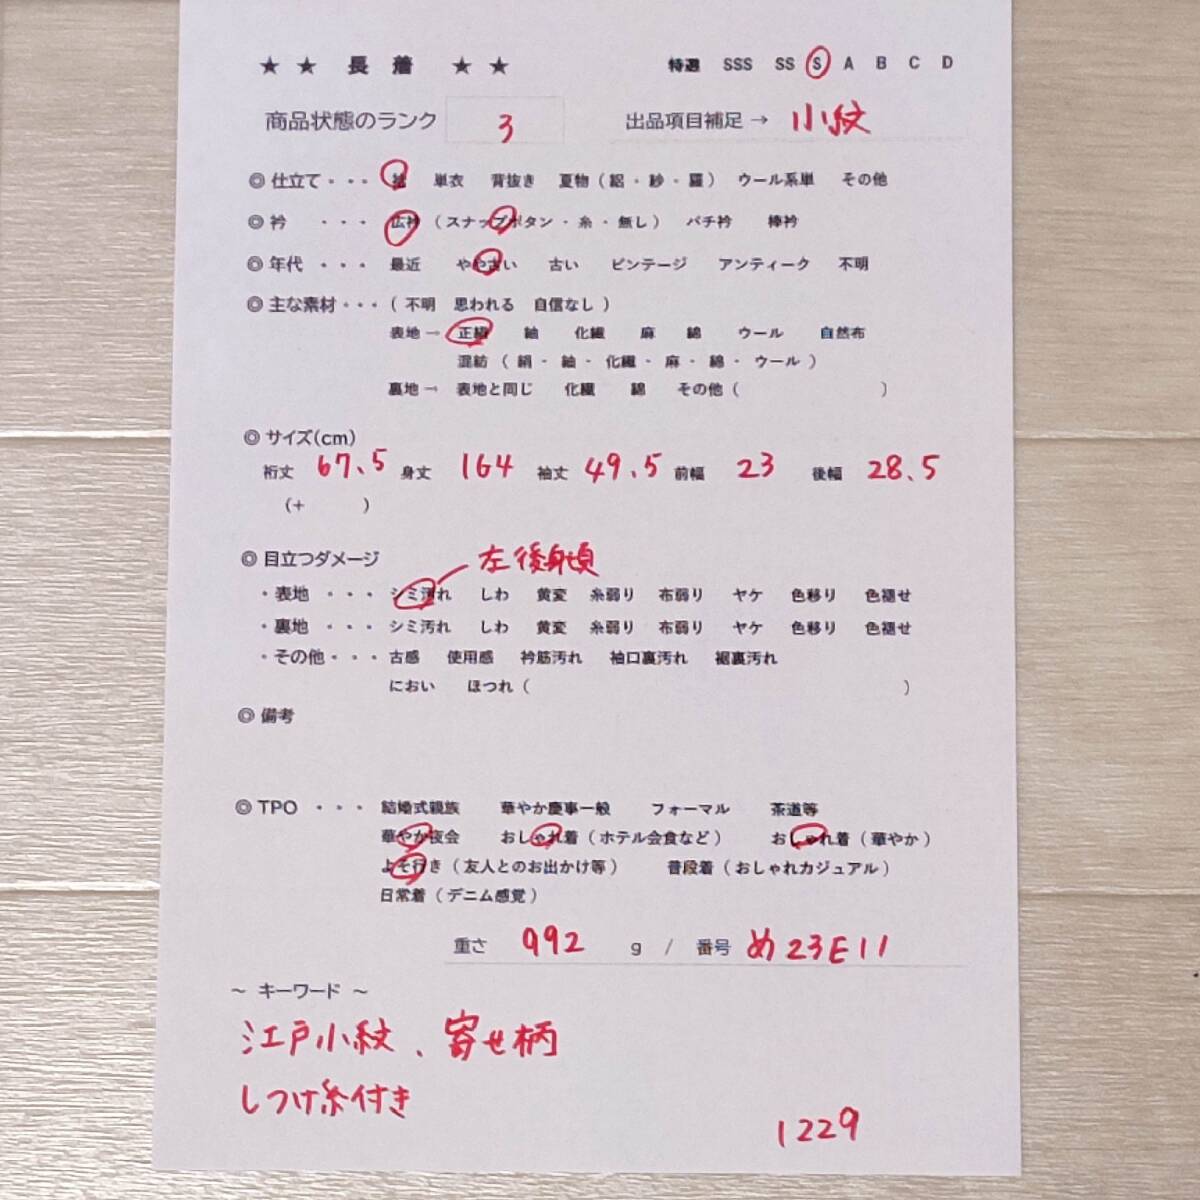 ★ ★ 長 着 ★ ★ 特選 SSS SS S A B C D
商品状態のランク 3 出品項目補足 → 小紋
◎ 仕立て・・・ 袷 単衣 背抜き 夏物（絽・紗・羅） ウール系単 その他
◎ 衿 ・・・ 広衿（スナップボタン・糸・無し） バチ衿 棒衿
◎ 年代 ・・・ 最近 やや古い 古い ビンテージ アンティーク 不明
◎ 主な素材・・・（ 不明 思われる 自信なし ）
表地→ 正絹 紬 化繊 麻 綿 ウール 自然布
混紡（ 絹・紬・化繊・麻・綿・ウール ）
裏地→ 表地と同じ 化繊 綿 その他（ ）
◎ サイズ(cm)
裄丈 67.5 身丈 164 袖丈 49.5 前幅 23 後幅 28.5
(+ )
◎ 目立つダメージ 左後身頃
・表地 ・・・ シミ汚れ しわ 黄変 糸弱り 布弱り ヤケ 色移り 色褪せ
・裏地 ・・・ シミ汚れ しわ 黄変 糸弱り 布弱り ヤケ 色移り 色褪せ
・その他・・・ 古感 使用感 衿筋汚れ 袖口裏汚れ 裾裏汚れ
におい ほつれ（ ）
◎ 備考
◎ TPO ・・・ 結婚式親族 華やか慶事一般 フォーマル 茶道等
華やか夜会 おしゃれ着（ホテル会食など） おしゃれ着（華やか）
よそ行き（友人とのお出かけ等） 普段着（おしゃれカジュアル）
日常着（デニム感覚）
重さ 992 g / 番号 め23E11
～ キーワード ～
江戸小紋、寄せ柄
しつけ糸付き
1229